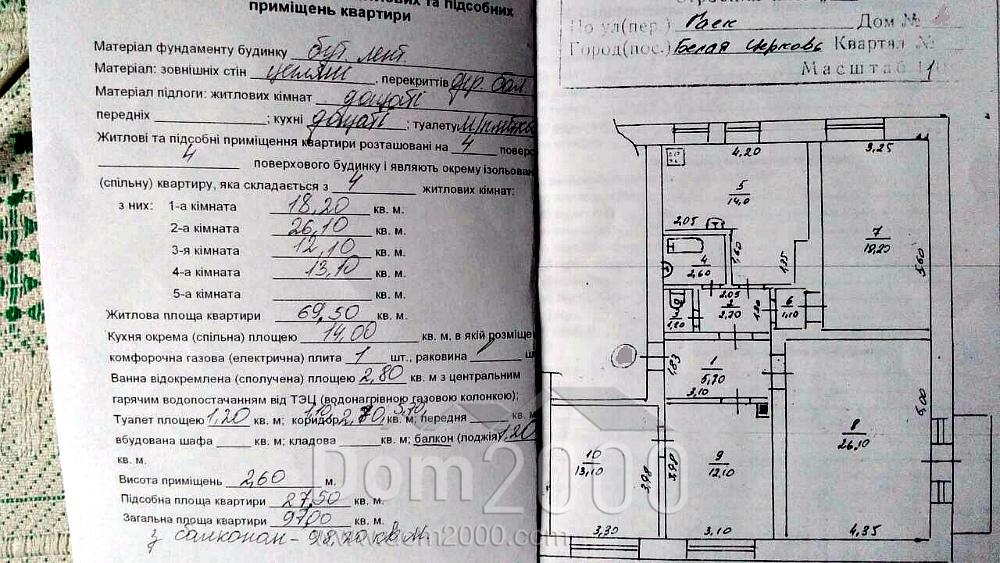 приміщень квартири
Матеріал фундаменту будинку бут. лент.
Матеріал: зовнішніх стін цегляні, перекриттів дер. бал.
Матеріал підлоги: житлових кімнат дощаті
передніх ; кухні дощаті ; туалету
Житлові та підсобні приміщення квартири розташовані на 4 поверсі
4 поверхового будинку і являють окрему ізольован
(спільну) квартиру, яка складається з 4 житлових кімнат:
з них: 1-а кімната 18,20 кв. м.
2-а кімната 26,10 кв. м.
3-я кімната 12,10 кв. м.
4-а кімната 13,10 кв. м.
5-а кімната кв. м.
Житлова площа квартири 69,50 кв. м.
Кухня окрема (спільна) площею 14,00 кв. м, в якій розміще
комфорочна газова (електрична) плита 1 шт., раковина
Ванна відокремлена (сполучена) площею 2,80 кв. м з центральним
гарячим водопостачанням від ТЭЦ (водонагрівною газовою колонкою);
Туалет площею 1,20 кв. м; коридор 1,10, 2,70, 5,70 кв. м; передня кв. м
вбудована шафа кв. м; кладова кв. м; балкон (лоджія) 1,20
кв. м.
Висота приміщень 2,60 м.
Підсобна площа квартири 27,50 кв. м.
Загальна площа квартири 97,00 кв. м.
з балконом - 98,20 кв. м.
По ул(пер.) Раск Дом №
Город(пос.) Белая Церковь Квартал №
Масштаб 1
4,20
3,25
5
14,0
7
18,20
2,05
1,60
1,35
5,60
4
2,60
2,05
3
1,20
2
2,70
1,30
6
1,10
1,83
1
5,70
3,10
6,00
8
26,10
10
13,10
3,98
3,98
9
12,10
3,30
3,10
4,35
Dom2000
www.dom2000.com